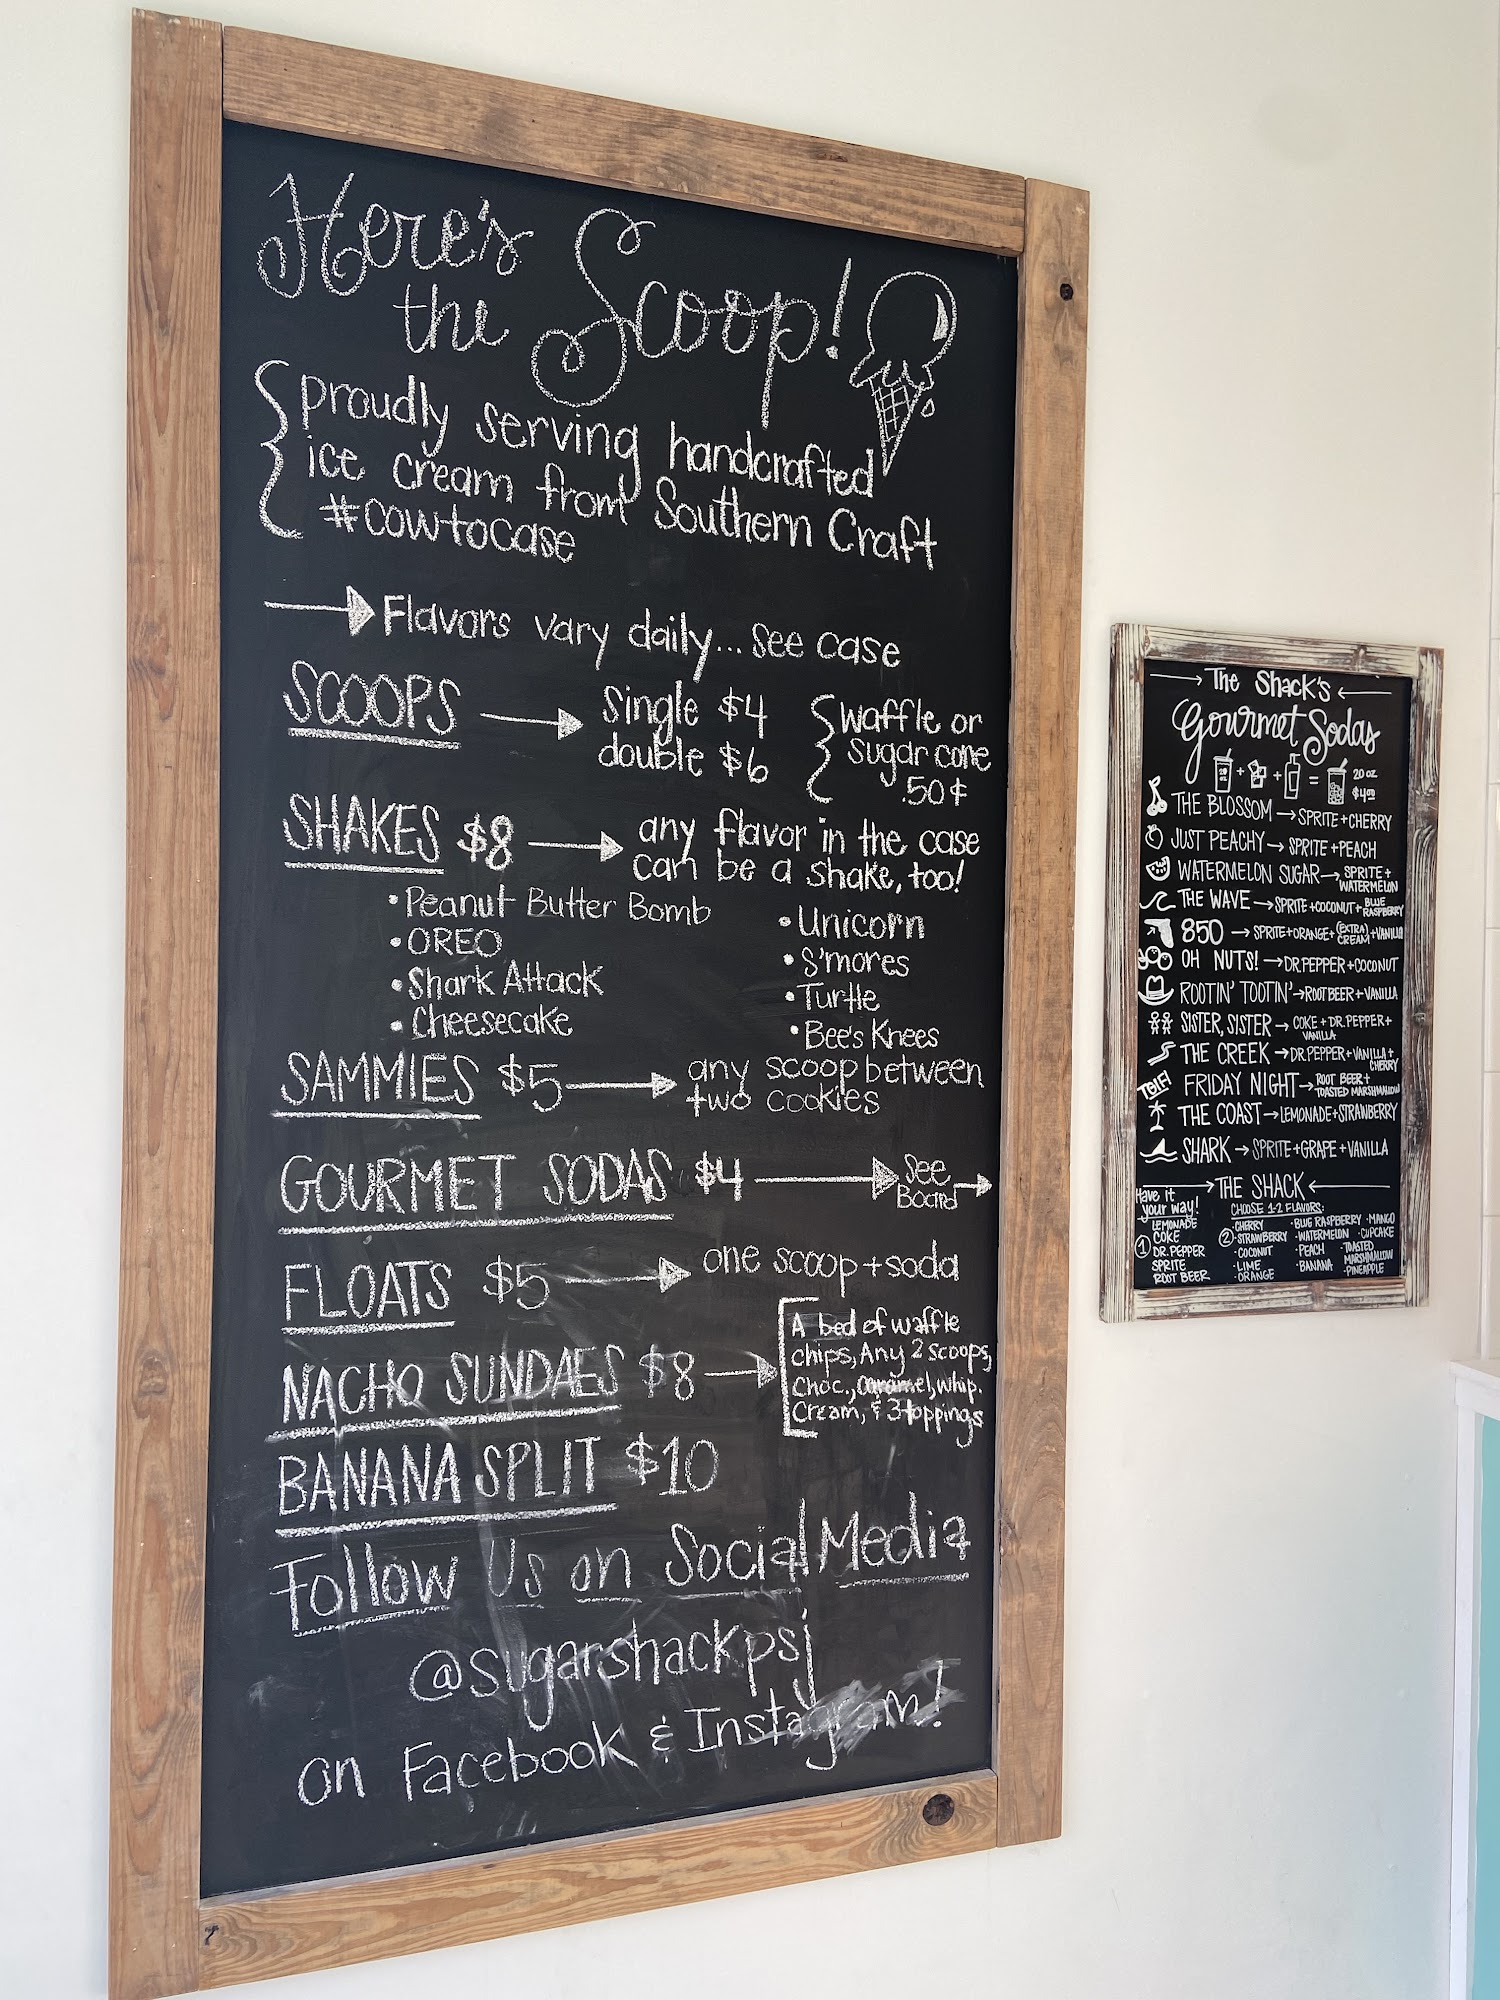 Here's
the Scoop!
proudly serving handcrafted
ice cream from Southern Craft
#cowtocase
Flavors vary daily... see case
SCOOPS
single $4
double $6
waffle or
sugar cone
.50¢
SHAKES $8
any flavor in the case
can be a shake, too!
• Peanut Butter Bomb
• OREO
• Shark Attack
• Cheesecake
• Unicorn
• S'mores
• Turtle
• Bee's Knees
SAMMIES $5
any scoop between
two cookies
GOURMET SODAS $4
see
Board
FLOATS $5
one scoop + soda
NACHO SUNDAES $8
A bed of waffle
chips, Any 2 scoops,
choc., caramel, whip.
cream, & 3 toppings
BANANA SPLIT $10
Follow Us on Social Media
@sugarshackpsj
on Facebook & Instagram!
The Shack's
Gourmet Sodas
20 oz
+ + =
20 oz
$4.00
THE BLOSSOM → SPRITE + CHERRY
JUST PEACHY → SPRITE + PEACH
WATERMELON SUGAR → SPRITE + WATERMELON
THE WAVE → SPRITE + COCONUT + BLUE RASPBERRY
850 → SPRITE + ORANGE + (EXTRA) CREAM + VANILLA
OH NUTS! → DR.PEPPER + COCONUT
ROOTIN' TOOTIN' → ROOT BEER + VANILLA
SISTER, SISTER → COKE + DR.PEPPER + VANILLA
THE CREEK → DR.PEPPER + VANILLA + CHERRY
TGIF! FRIDAY NIGHT → ROOT BEER + TOASTED MARSHMALLOW
THE COAST → LEMONADE + STRAWBERRY
SHARK → SPRITE + GRAPE + VANILLA
THE SHACK
Have it
your way!
① LEMONADE
COKE
DR.PEPPER
SPRITE
ROOT BEER
CHOOSE 1-2 FLAVORS:
② · CHERRY
· STRAWBERRY
· COCONUT
· LIME
· ORANGE
· BLUE RASPBERRY
· WATERMELON
· PEACH
· BANANA
· MANGO
· CUPCAKE
· TOASTED
MARSHMALLOW
· PINEAPPLE